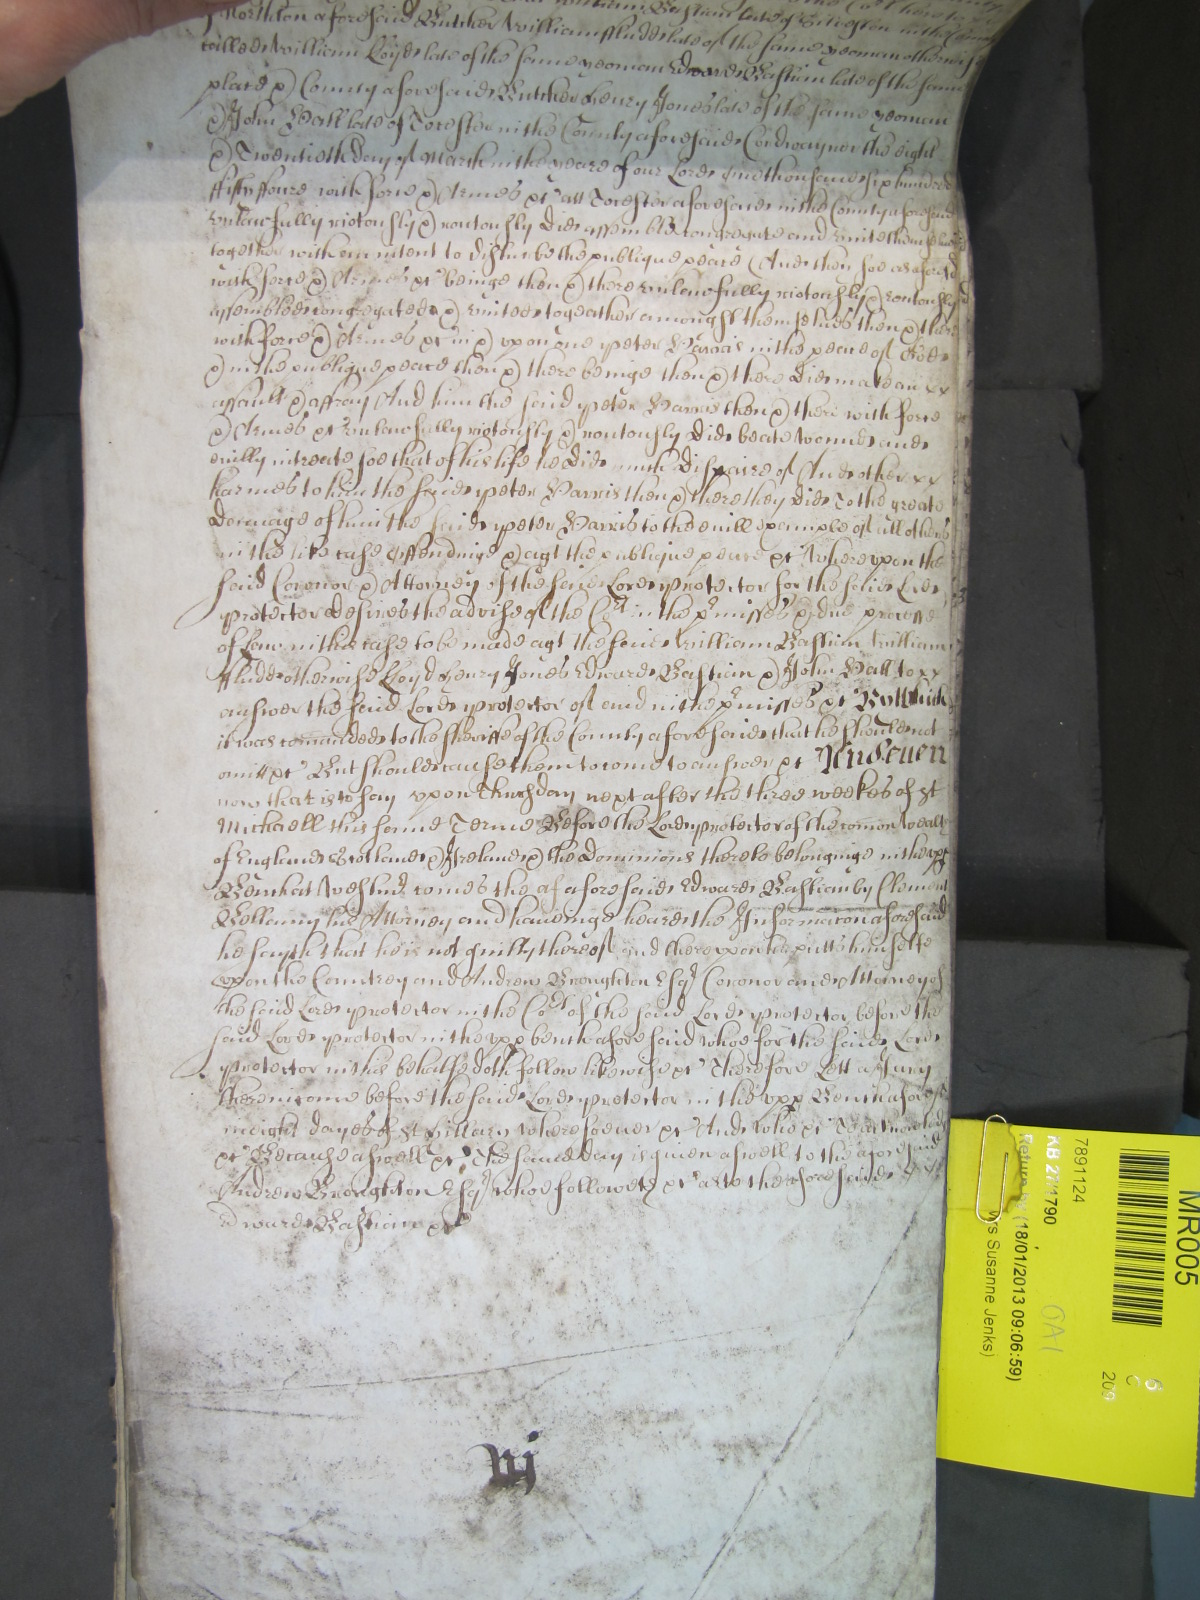 Northton aforesaid Butcher William Fludd late of the same yeoman otherwise
called William Loyd late of the same yeoman Edward Bastian late of the same
place & County aforesaid Butcher Henry Jones late of the same yeoman
& John Hall late of Tocester in the County aforesaid Cordwayner the eight
& Twentieth Day of March in the yeare of our Lord one thousand six hundred
fifty ffoure with force & Armes &c att Tocester aforesaid in the County aforesaid
vnlawfully riotously & routously did assemble congregate and vnite themselves
together with an intent to disturbe the publique peace And then soe as aforesaid
with force & Armes &c beinge then & there vnlawfully riotously & routously
assembled congregated & vnited together amongst themselues then & there
with force & Armes &c in & vpon one Peter Harris in the peace of God
& in the publique peace then & there beinge then & there did make an xx
assault & affray And him the said Peter Harris then & there with force
& Armes &c vnlawfully riotously & routously did beate wound and
euilly intreate soe that of his life he did much dispaire of And other xx
harmes to him the said Peter Harris then & there they did To the greate
Damage of him the said Peter Harris to the euill example of all others
in the like case offendinge & agt the publique peace &c Wherevpon the
said Coronor & Attorney of the said Lord Protector for the said Lord
Protector desires the advise of the Cort in the pmisses & due processe
of Law in this case to be made agt the said William Bastian William
Fludd otherwise Loyd Henry Jones Edward Bastian & John Hall to xx
answer the said Lord Protector of and in the pmisses &c Wherefore
it was comanded to the Sheriffe of the County aforesaid that he should not
omitt &c But should cause them to come to answer &c And euen
now that is to say vpon Thursday next after the three weekes of St
Michaell this same Terme Before the Lord Protector of the Comon wealth
of England Scotland & Ireland & the Dominions thereto belonginge in the vpp
Bench at Westmr comes the af aforesaid Edward Bastian by Clement
his Attorney and hauinge heard the Informacon aforesaid
he sayth that he is not guilty thereof and therevpon he putts himselfe
vpon the Countrey and Andrew Broughton Esqr Coronor and Attorney of
the said Lord Protector in the Cort of the said Lord Protector before the
said Lord Protector in the vpp bench aforesaid whoe for the said Lord
Protector in this behalfe doth follow likewise &c Therefore Lett a Jury
therein come before the said Lord Protector in the vpp Bench aforesd
in eight dayes of St Hillary wheresoeuer &c And who &c To
&c Because aswell &c The same day is giuen aswell to the aforesaid
Andrew Broughton Esqr whoe followeth &c as to the aforesaid
Edward Bastian &c
iij
MR005
7891124
KB 27/1790
Return by (18/01/2013 09:06:59)
Susanne Jenks)
6A1
209